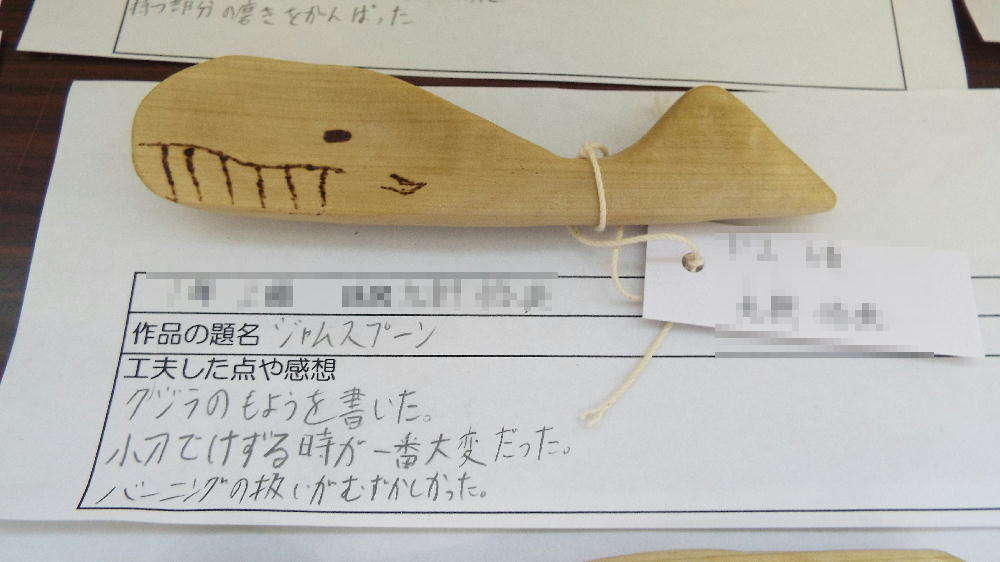 持つ部分の磨きをがんばった
作品の題名 ジャムスプーン
工夫した点や感想
クジラのもようを書いた。
小刀でけずる時が一番大変だった。
バーニングの扱いがむずかしかった。